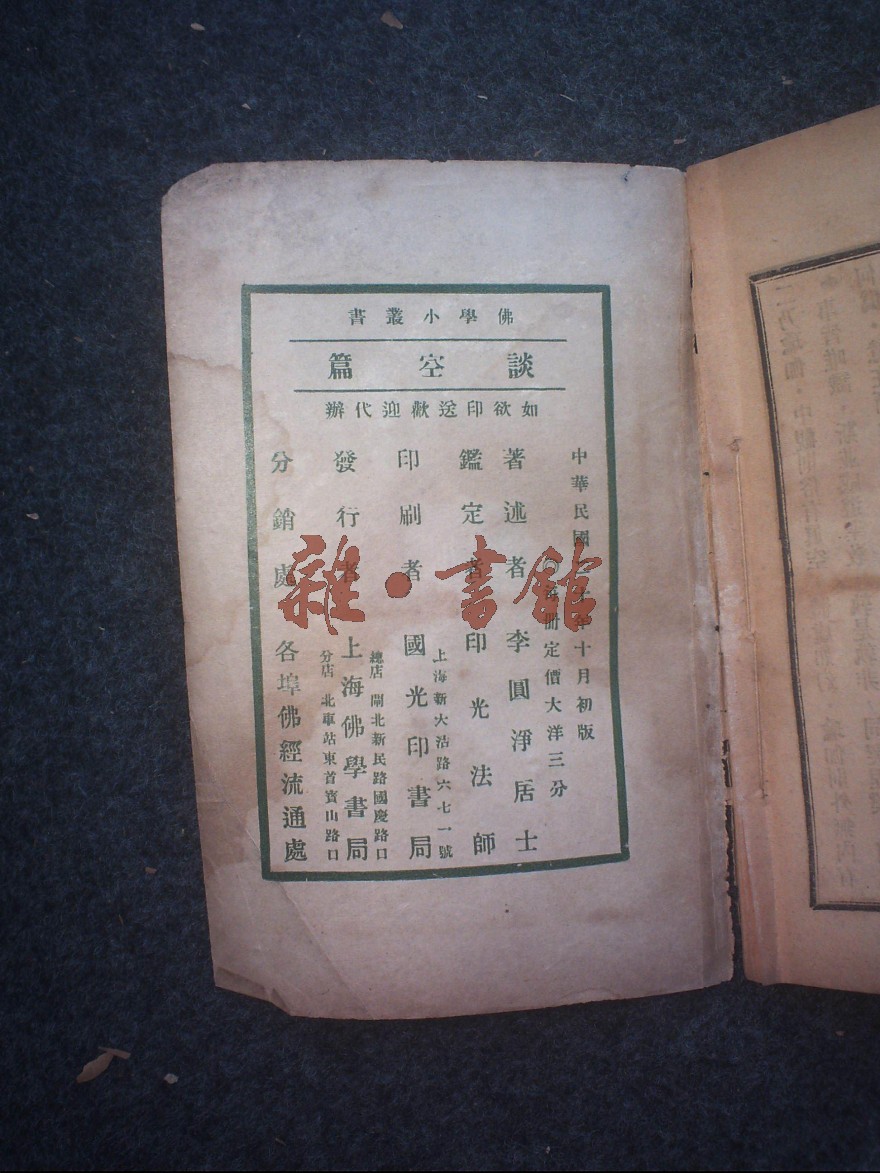 佛學小叢書
談空篇
如欲印送歡迎代辦
中華民國 年十月初版
每冊定價大洋三分
著述者 李圓淨居士
鑑定者 印光法師
上海新大沽路六七一號
印刷者 國光印書局
總店 閘北新民路國慶路口
發行者 上海佛學書局
分店 北車站東首寶山路口
分銷處 各埠佛經流通處
雜·書館